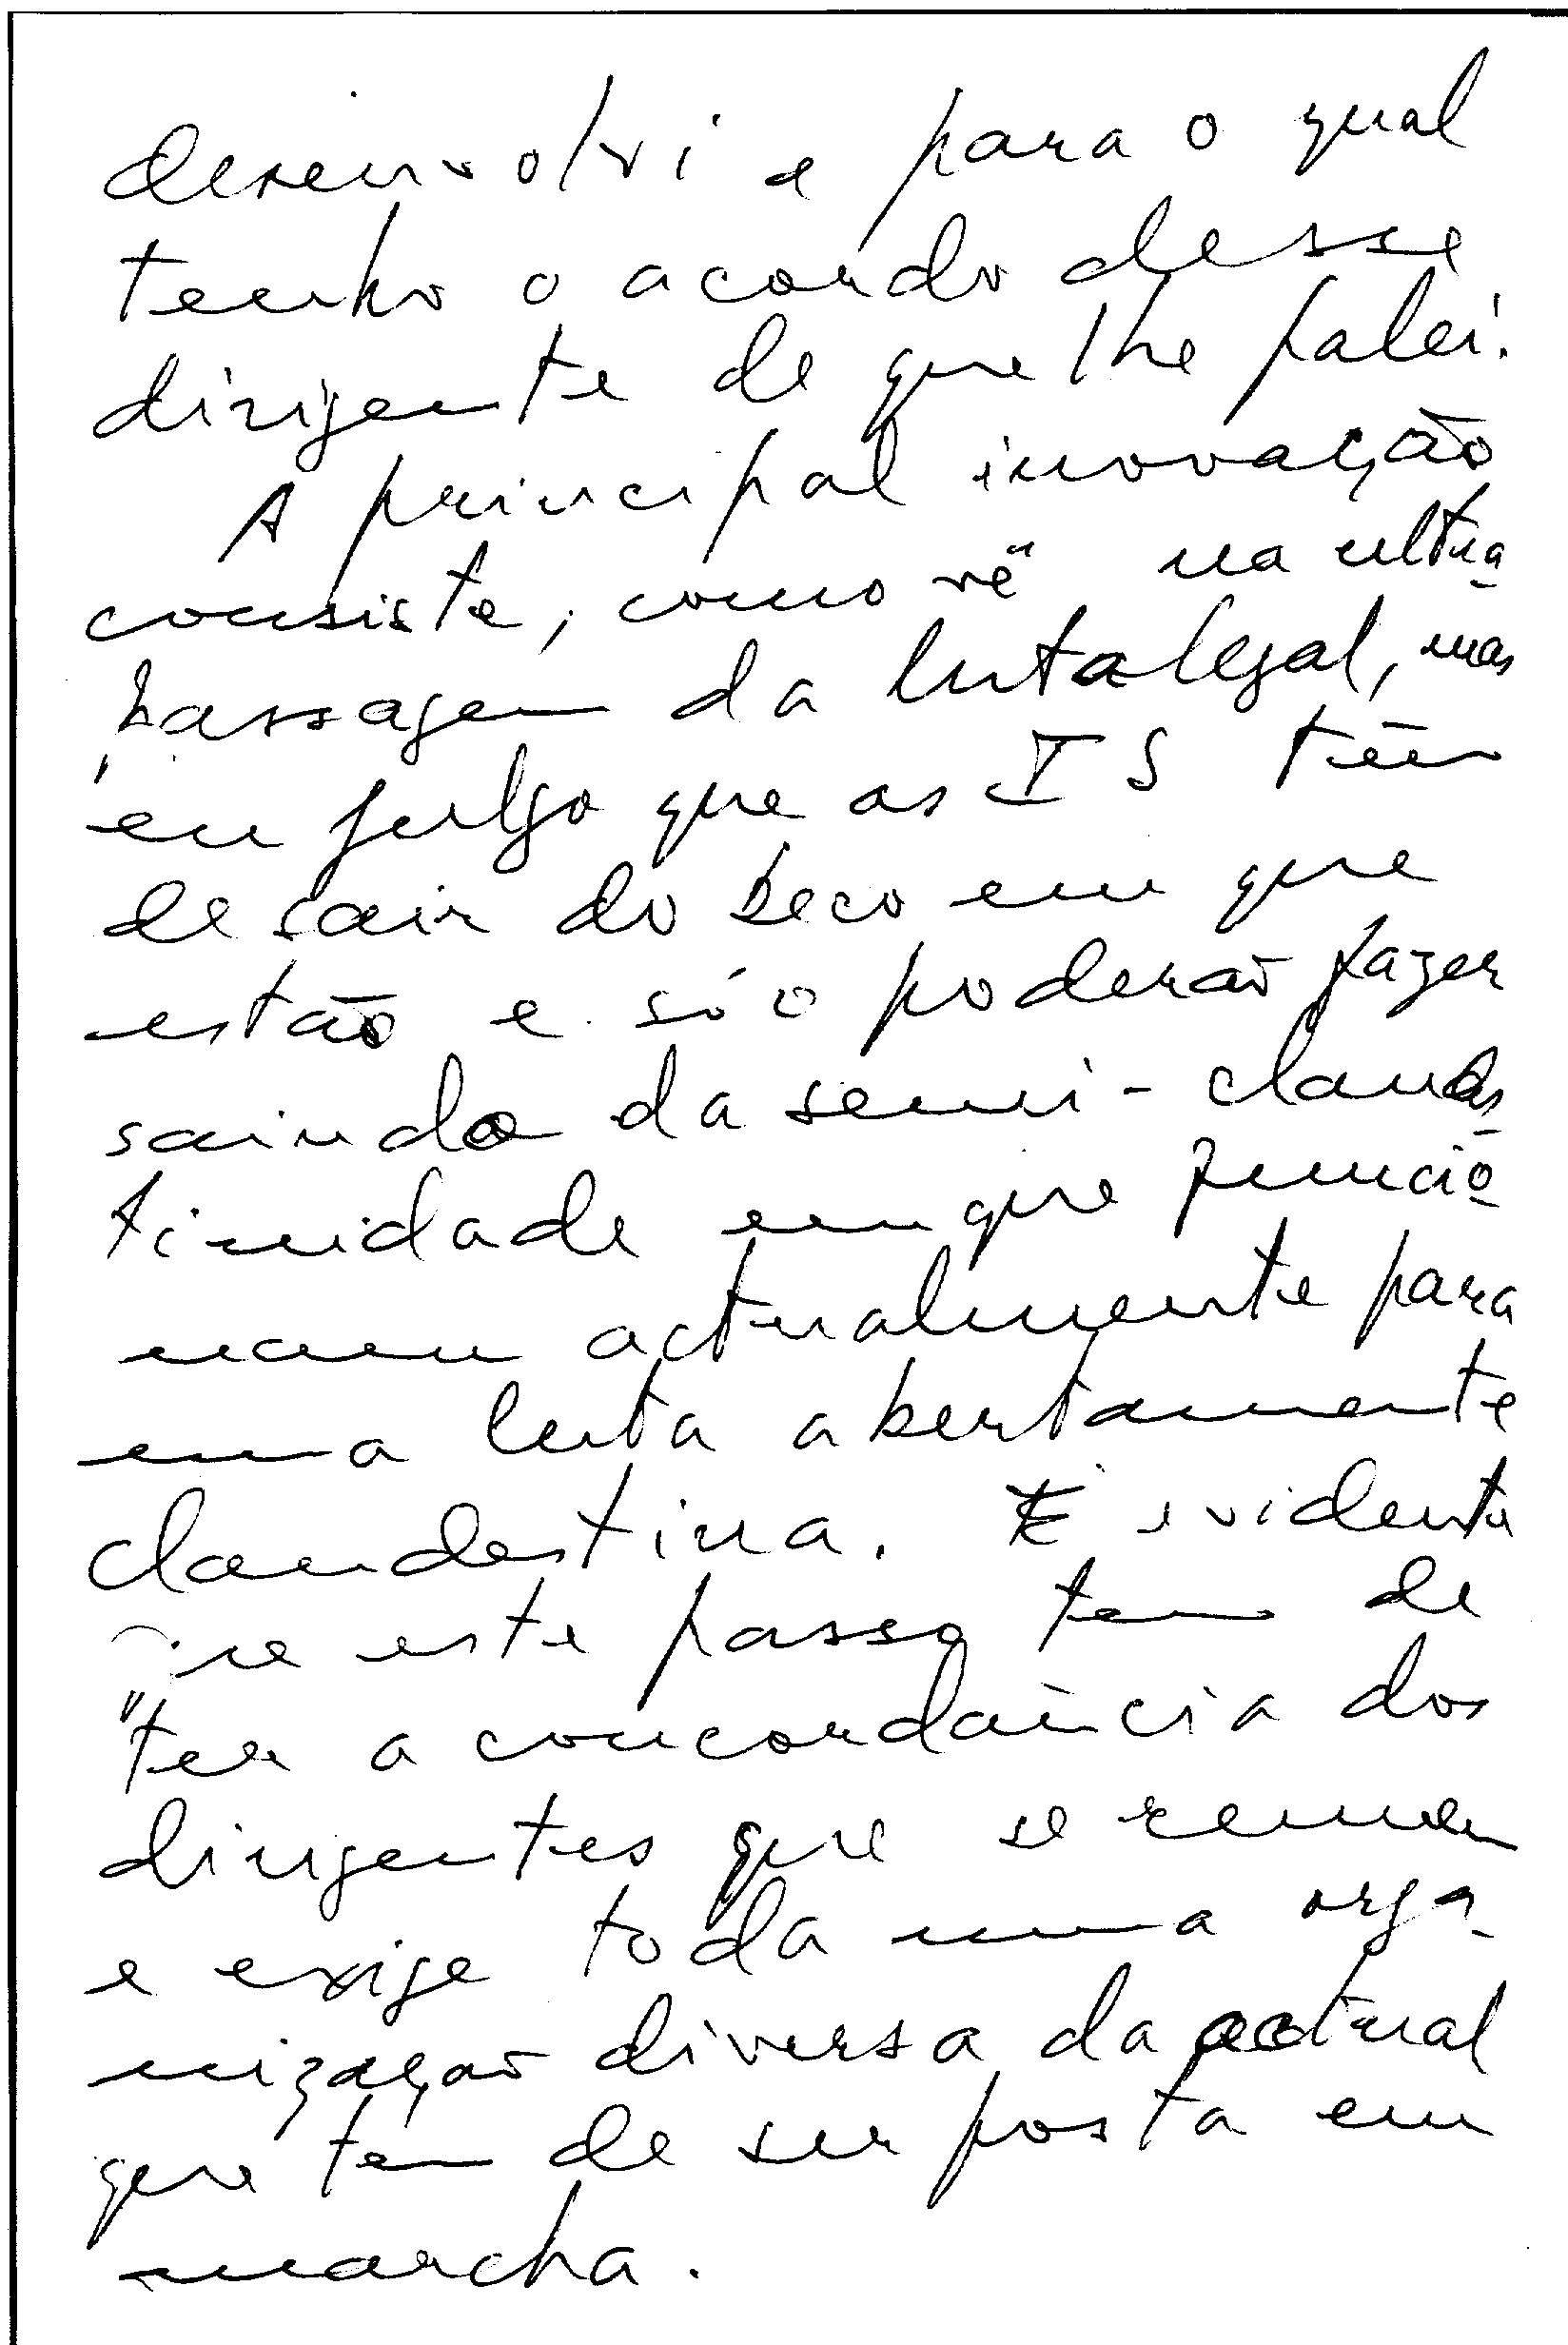 desenvolvi e para o qual
tenho o acordo desse
dirigente de que lhe falei.
A principal inovação
consiste, como vê na ultra
passagem da luta legal, mas
eu julgo que as IS têm
de sair do beco em que
estão e só o poderão fazer
saindo da semi-clandes
tinidade em que funcio
nam actualmente para
uma luta abertamente
clandestina. É evidente
que este passo tem de
ter a concordância dos
dirigentes que se reunem
e exige toda uma orga
nização diversa da actual
que tem de ser posta em
marcha.